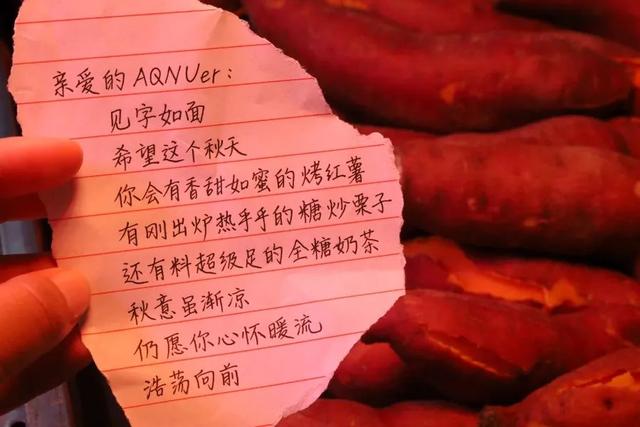 亲爱的 AQNUer：
见字如面
希望这个秋天
你会有香甜如蜜的烤红薯
有刚出炉热乎乎的糖炒栗子
还有料超级足的全糖奶茶
秋意虽渐凉
仍愿你心怀暖流
浩荡向前